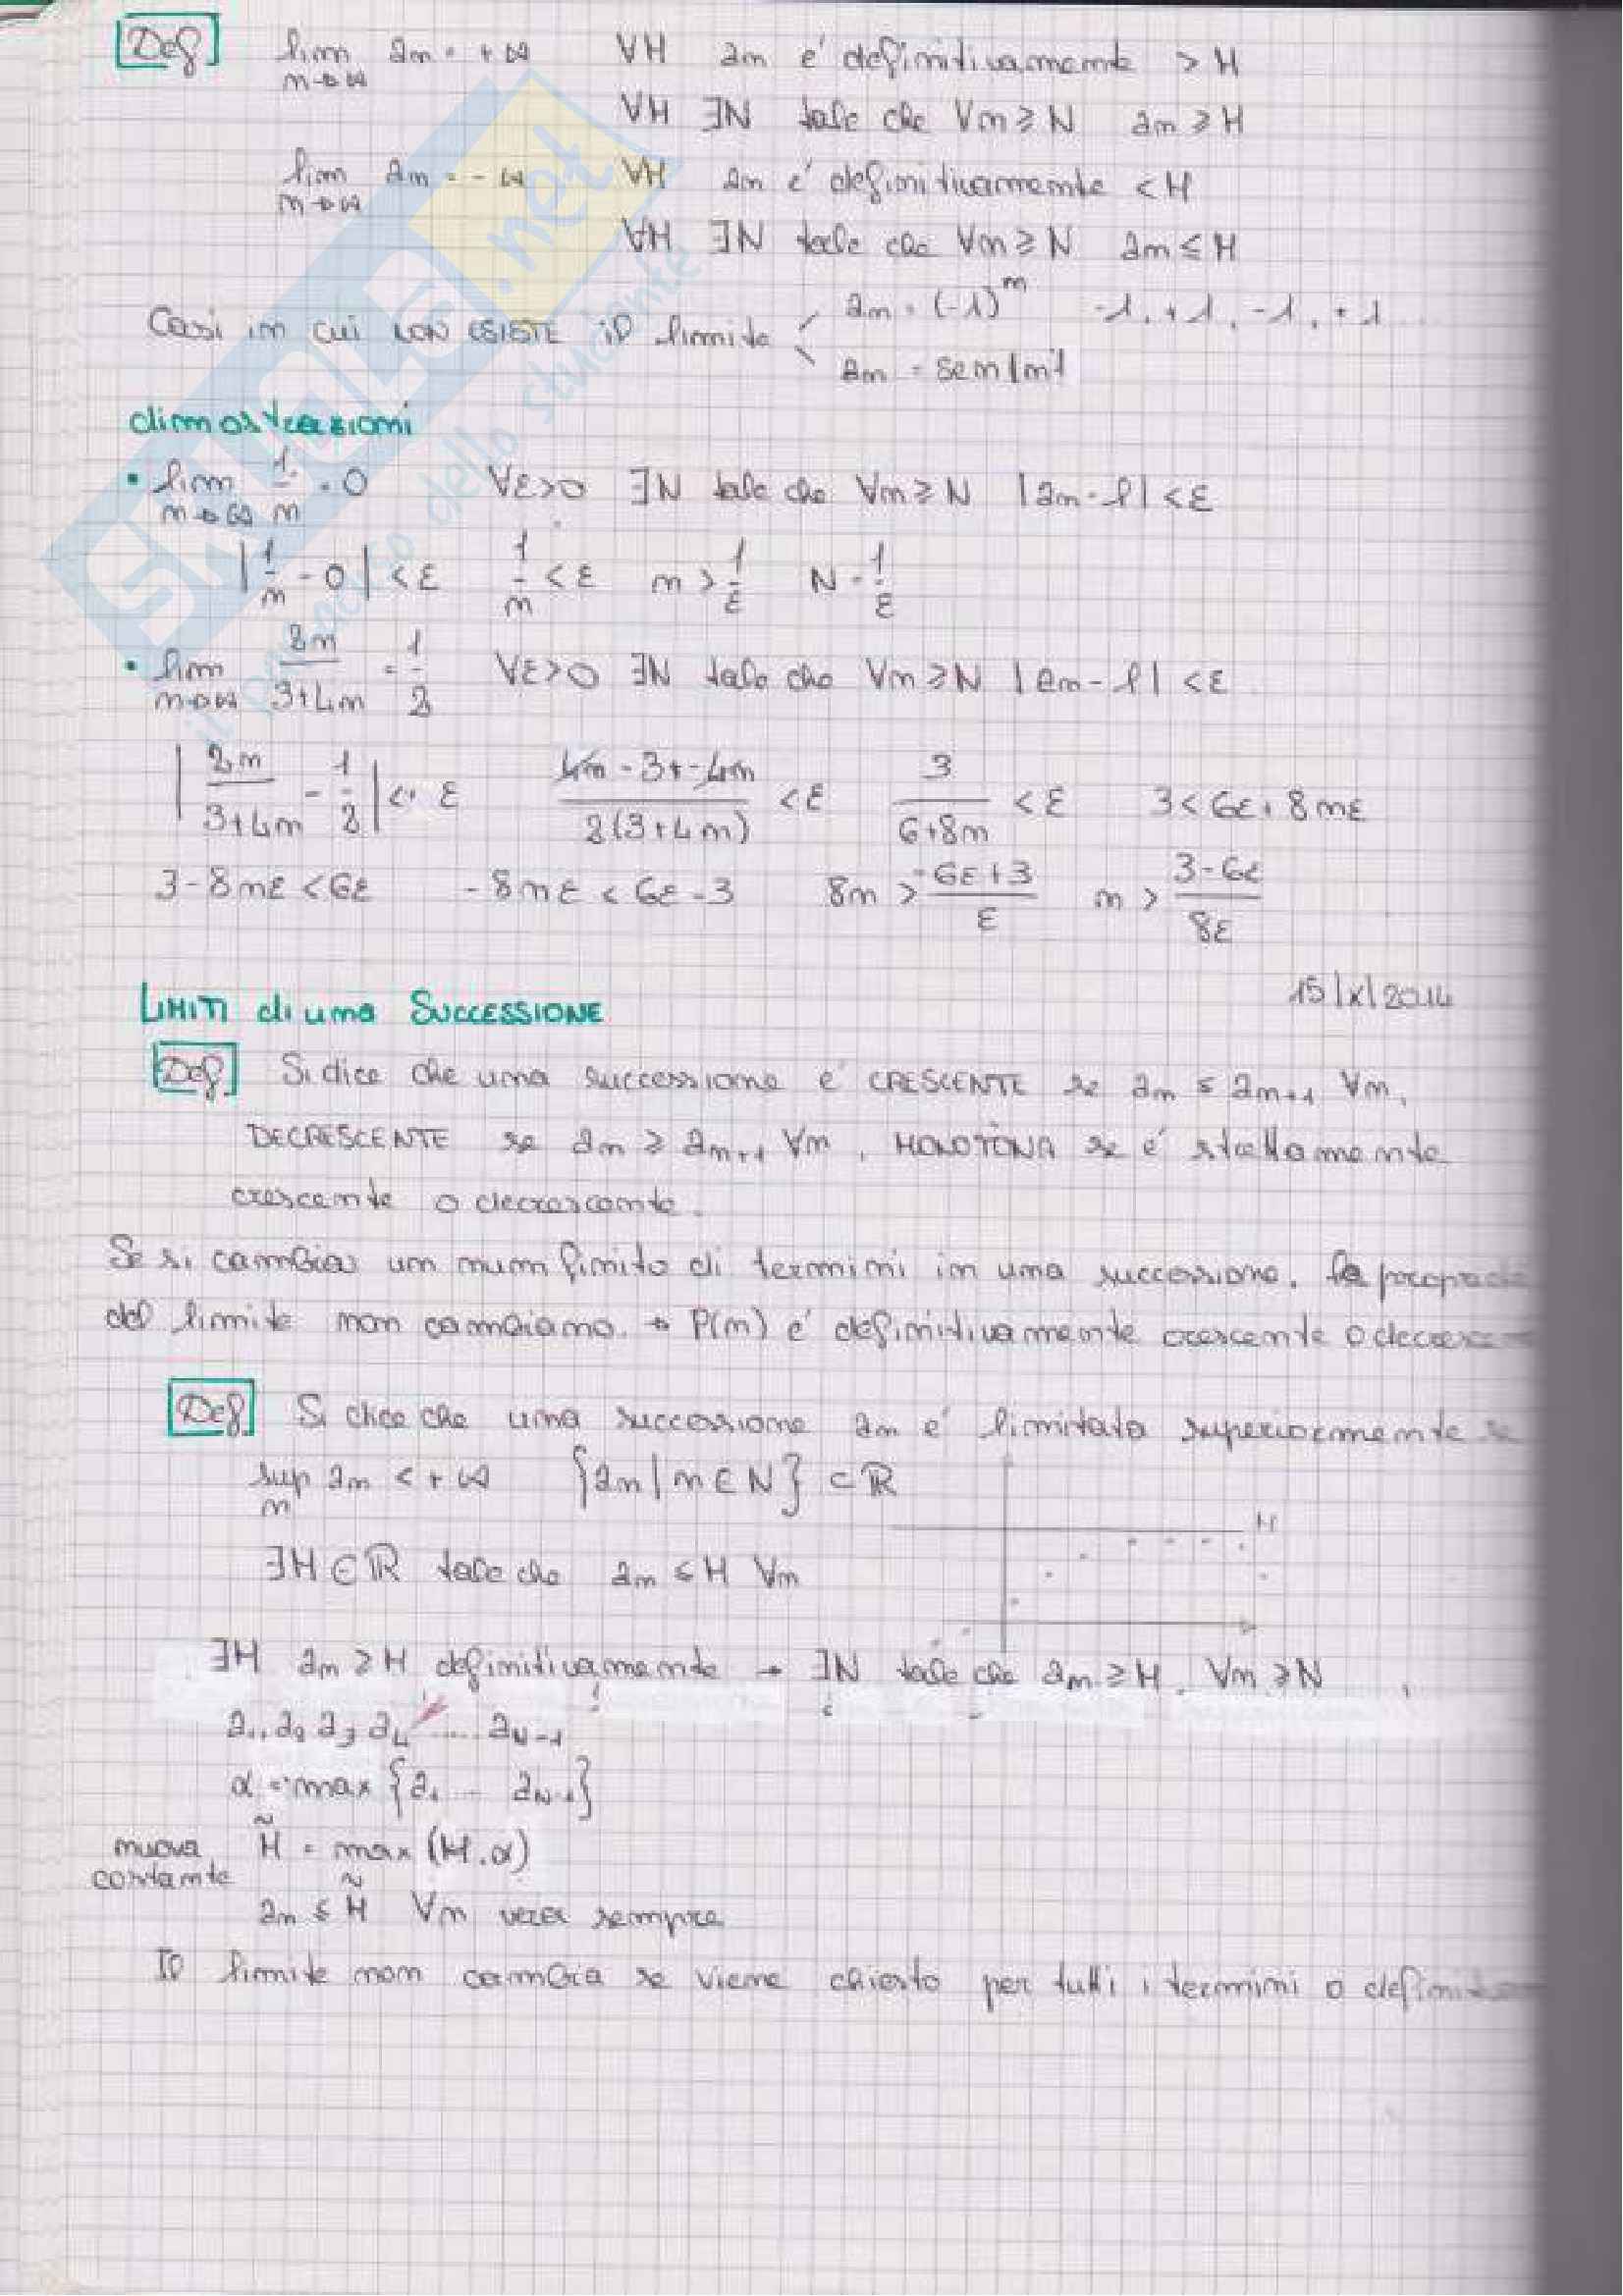 Def lim n→∞ an = +∞ ∀M an é definitivamente > M
∀M ∃N tale che ∀n ≥ N an ≥ M
lim n→∞ an = -∞ ∀M an é definitivamente < M
∀M ∃N tale che ∀n ≥ N an ≤ M
Casi in cui NON ESISTE il limite an = (-1)^n -1, +1, -1, +1
an = sen(n)
dimostrazioni
• lim n→∞ 1/n = 0 ∀ε>0 ∃N tale che ∀n ≥ N |an - l| < ε
|1/n - 0| < ε 1/n < ε n > 1/ε N = 1/ε
• lim n→∞ 2n/(3+4n) = 1/2 ∀ε>0 ∃N tale che ∀n ≥ N |an - l| < ε
|2n/(3+4n) - 1/2| < ε (4n - 3 + - 4n)/(2(3+4n)) < ε 3/(6+8n) < ε 3 < 6ε + 8nε
3 - 8nε < 6ε -8nε < 6ε - 3 8n > (-6ε+3)/ε n > (3-6ε)/8ε
15|X|2014
LIMITI di una SUCCESSIONE
Def Si dice che una successione é CRESCENTE se an ≤ an+1 ∀n,
DECRESCENTE se an ≥ an+1 ∀n, MONOTONA se é strettamente
crescente o decrescente.
Se si cambia un num finito di termini in una successione, le
del limite non cambiano. → P(n) é definitivamente crescente o
Def Si dice che una successione an é limitata superiormente se
sup n an < +∞ {an | n ∈ N} ⊂ ℝ
M
∃M ∈ ℝ tale che an ≤ M ∀n
∃M an ≥ M definitivamente → ∃N tale che an ≥ M, ∀n ≥ N
a1, a2 a3 a4 ..... aN-1
α = max {a1 ... aN-1}
nuova M̃ = max (M, α)
costante
an ≤ M̃ ∀n vera sempre
Il limite non cambia se viene chiesto per tutti i termini o
SKUOLA.net
il paradiso dello studente